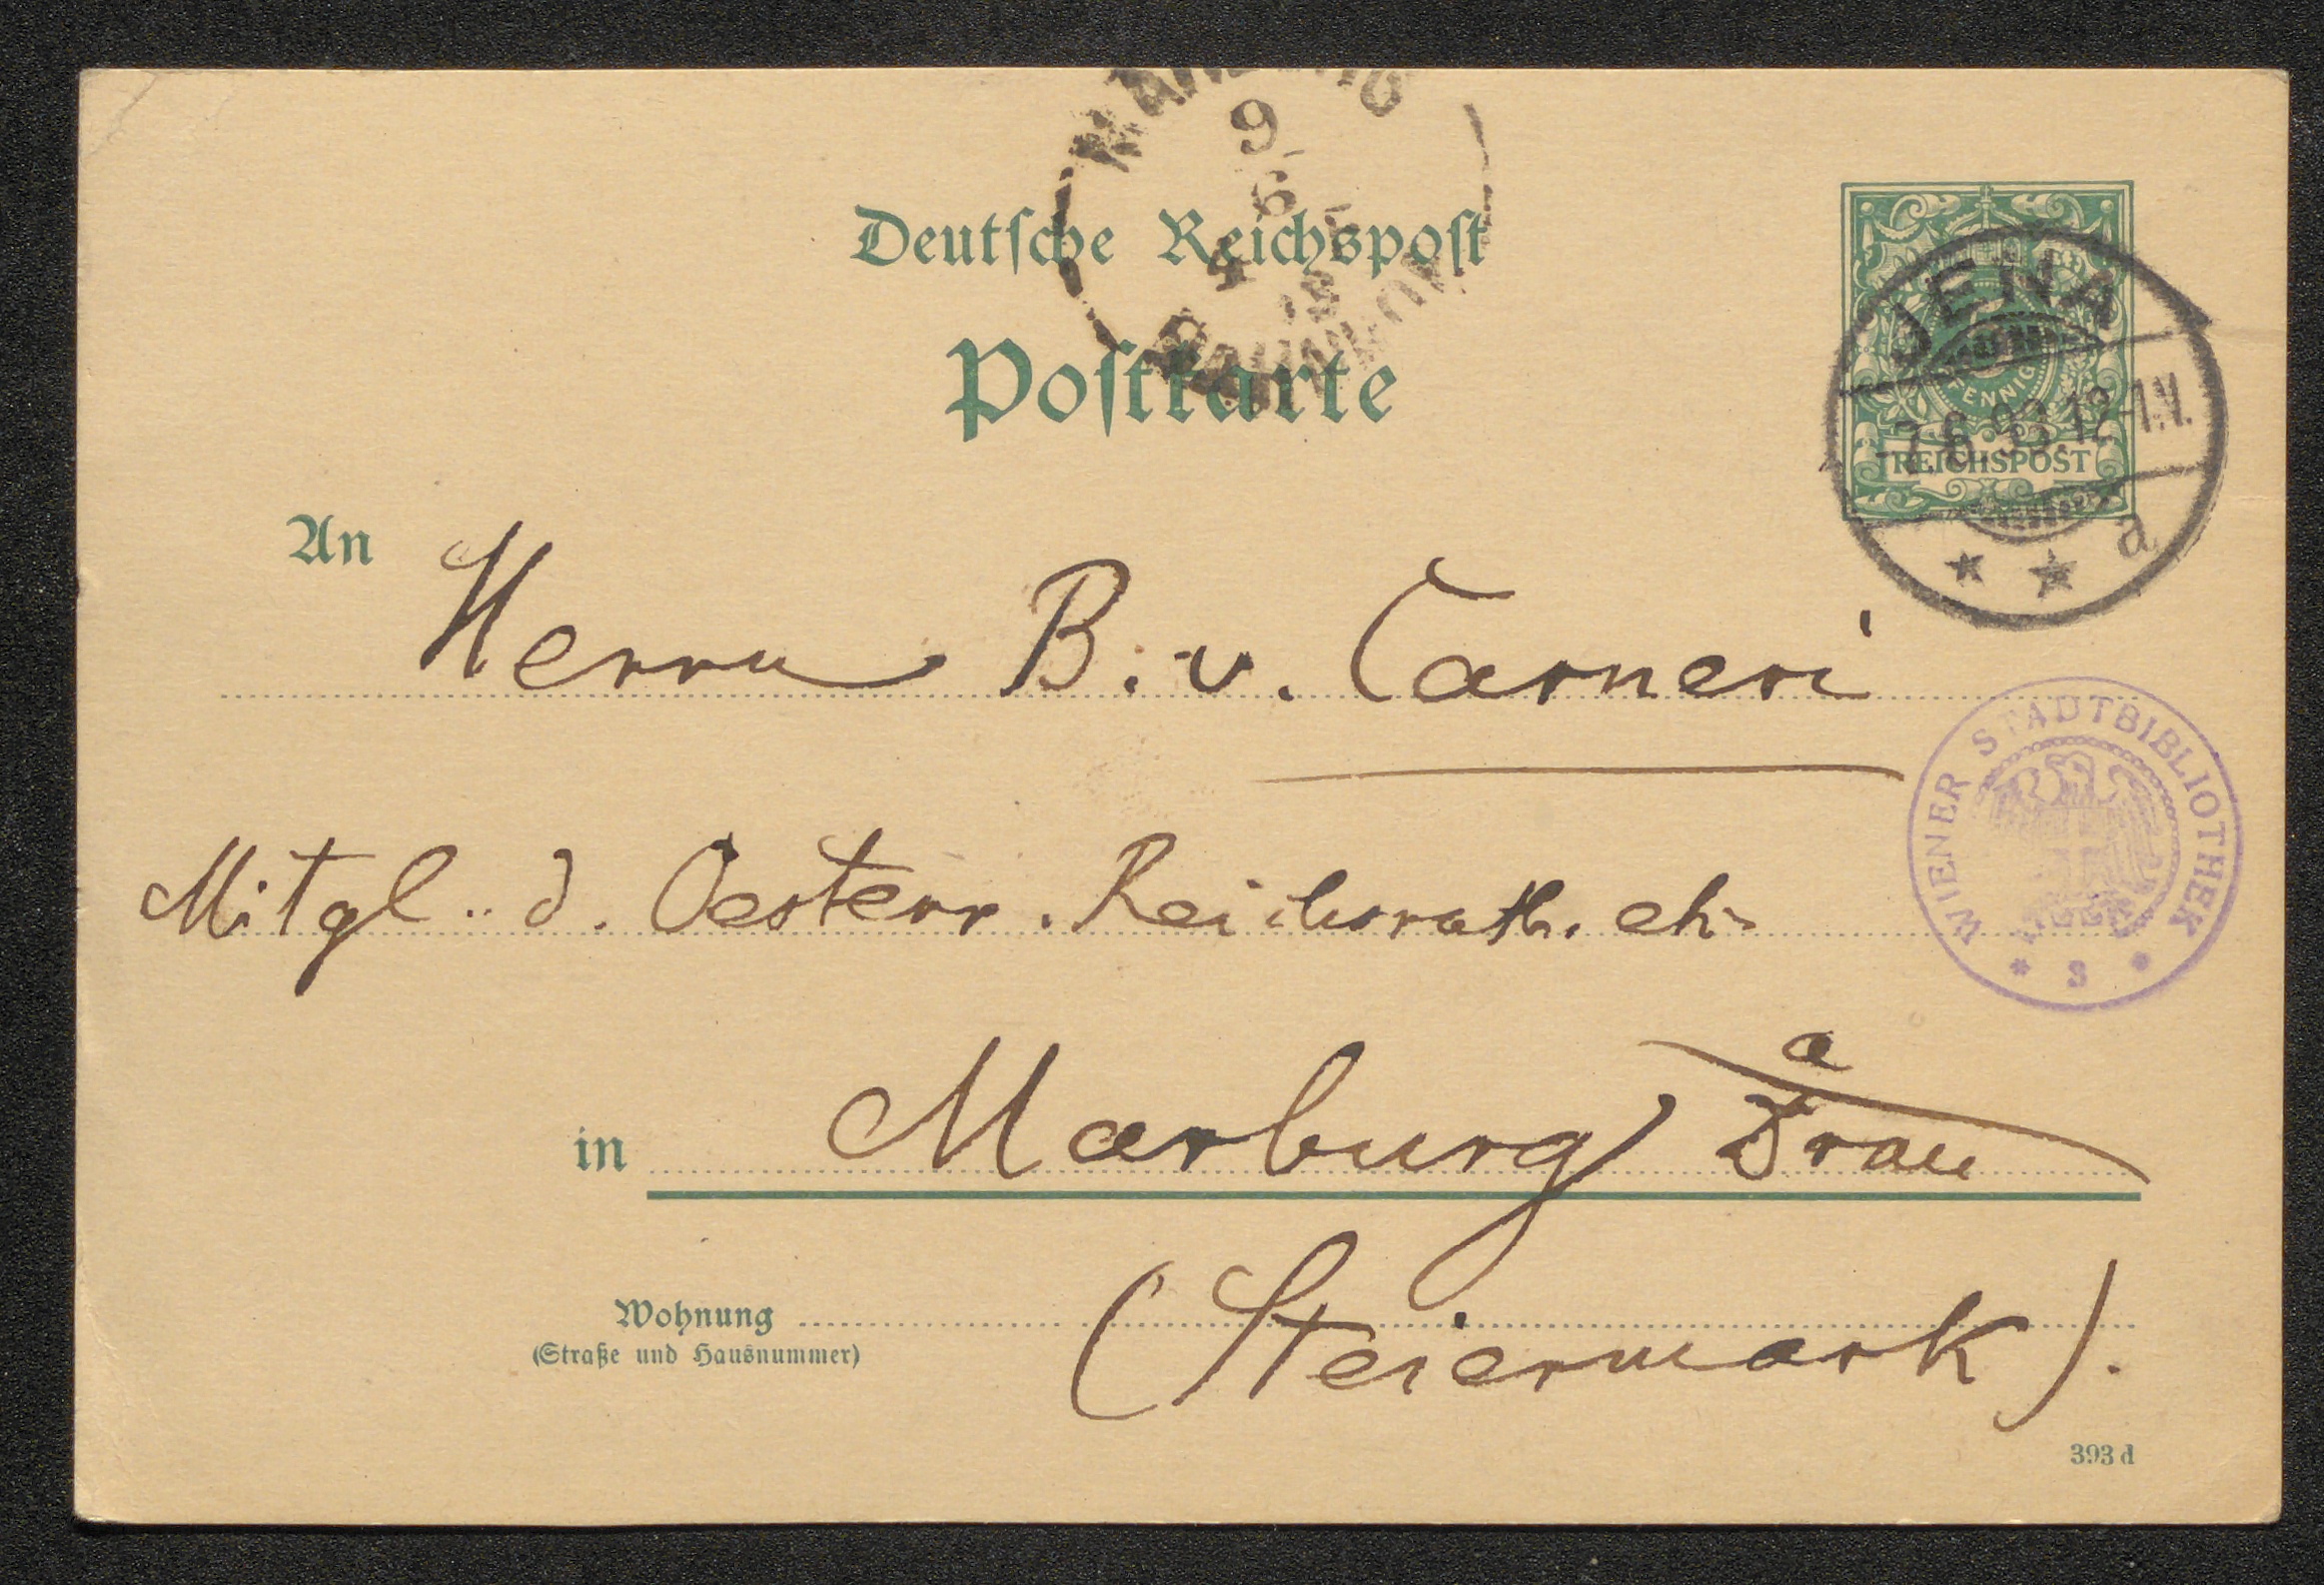 MARBURG
9
6
4
BAHNHOF
Deutsche Reichspost
Postkarte
JENA
PFENNIG
-7.6.93.12-1.N.
REICHSPOST
* * a
An Herrn B. v. Carneri
WIENER STADTBIBLIOTHEK
* S *
Mitgl. d. Oesterr. Reichsrath.
in Marburg a Drau
Wohnung
(Straße und Hausnummer)
(Steiermark).
393 d